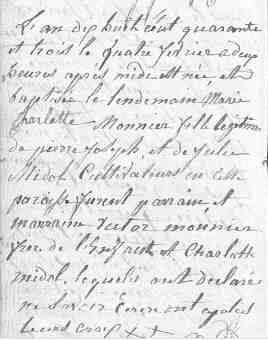 L'an dix huit cent quarante
et trois le quatre fevrier a deux
heures apres midi est née, et
baptisée le lendemain Marie
Charlotte Monnier fille legitime
de pierre joseph, et de julie
Midol Cultivateurs en cette
paroisse furent parrain, et
marraine victor monnier
frere de l'Enfant et Charlotte
midol, lesquels ont declaré
ne savoir Ecrire ont apposé
leurs croix + +